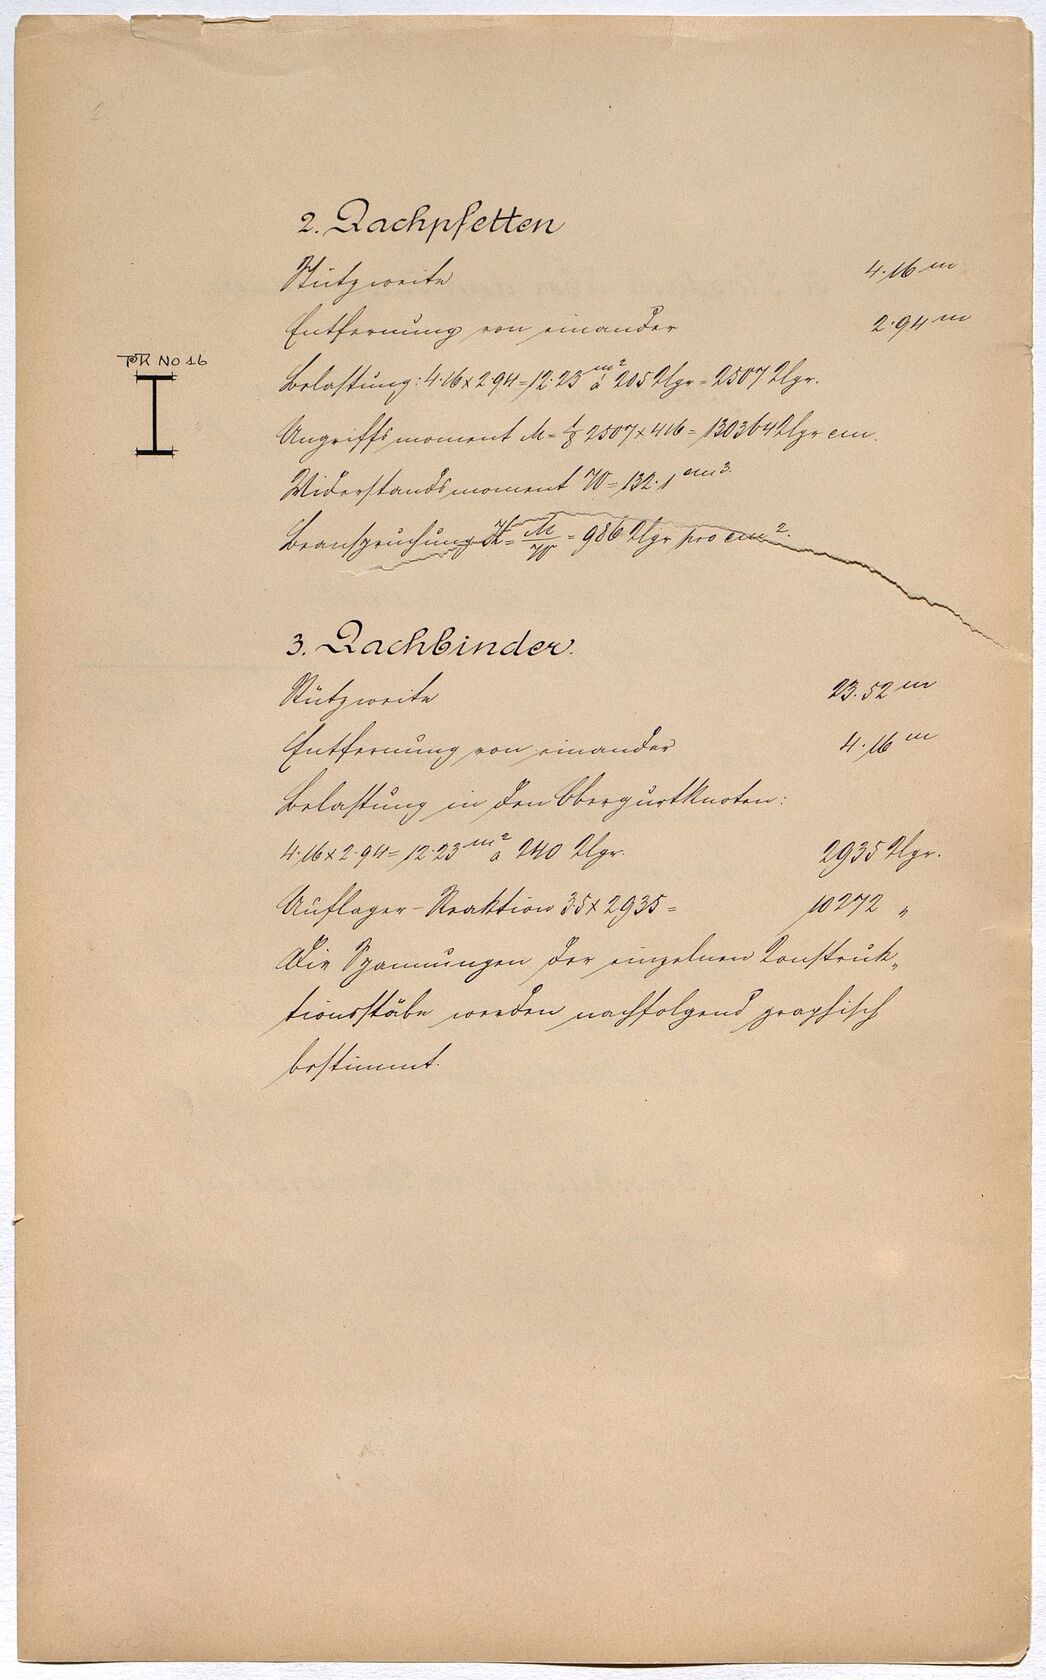 2. Dachpfetten
Stützweite 4.16 m
Entfernung von einander 2.94 m
PR No 16
Belastung: 4.16 x 2.94 = 12.23 m² à 205 Klgr = 2507 Klgr.
Angriffsmoment M = 1/8 2507 x 416 = 130364 Klgr cm.
Widerstandsmoment W = 132.1 cm³
Beanspruchung K = M/W = 986 Klgr pro cm².
3. Dachbinder.
Stützweite 23.52 m
Entfernung von einander 4.16 m
Belastung in den Obergurtknoten:
4.16 x 2.94 = 12.23 m² à 240 Klgr. 2935 Klgr.
Auflager-Reaktion 35 x 2935 = 10272 "
Die Spannungen der einzelnen Construk„
tionsstäbe werden nachfolgend graphisch
bestimmt.